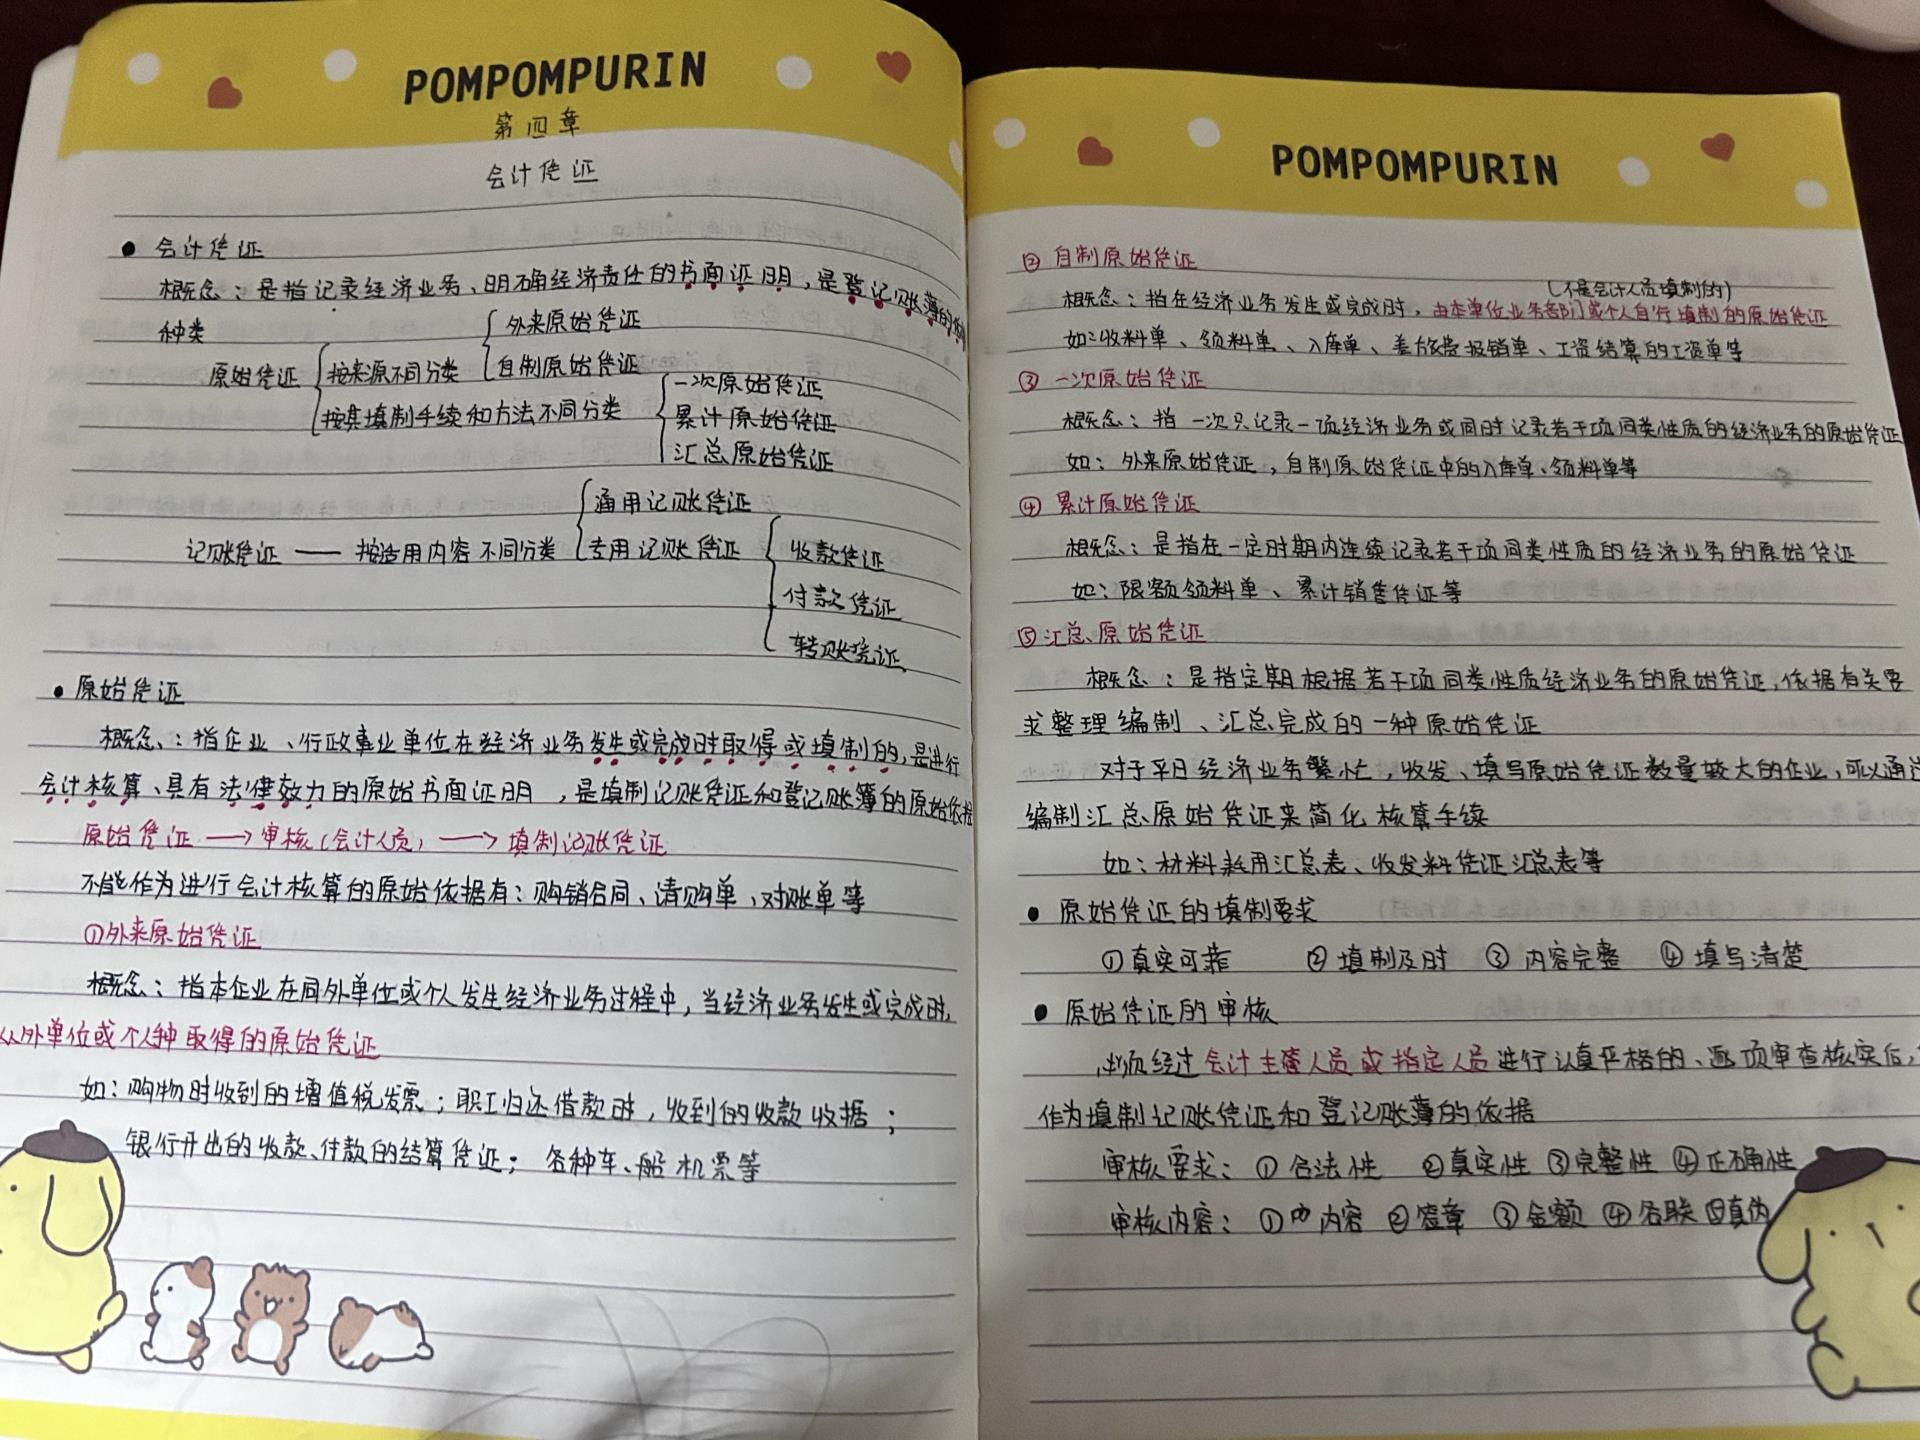 POMPOMPURIN
第四章
会计凭证
● 会计凭证
概念：是指记录经济业务、明确经济责任的书面证明，是登记账薄的
种类
原始凭证
按来源不同分类
外来原始凭证
自制原始凭证
按其填制手续和方法不同分类
一次原始凭证
累计原始凭证
汇总原始凭证
记账凭证 —— 按适用内容不同分类
通用记账凭证
专用记账凭证
收款凭证
付款凭证
转账凭证
● 原始凭证
概念：指企业、行政事业单位在经济业务发生或完成时取得或填制的，是进行
会计核算、具有法律效力的原始书面证明，是填制记账凭证和登记账簿的原始依据
原始凭证 → 审核（会计人员） → 填制记账凭证
不能作为进行会计核算的原始依据有：购销合同、请购单、对账单等
①外来原始凭证
概念：指本企业在同外单位或个人发生经济业务过程中，当经济业务发生或完成时，
从外单位或个人种取得的原始凭证
如：购物时收到的增值税发票；职工归还借款时，收到的收款收据；
银行开出的收款、付款的结算凭证；各种车、船机票等
POMPOMPURIN
② 自制原始凭证
（不是会计人员填制的）
概念：指在经济业务发生或完成时，由本单位业务部门或个人自行填制的原始凭证
如：收料单、领料单、入库单、差旅费报销单、工资结算的工资单等
③ 一次原始凭证
概念：指一次只记录一项经济业务或同时记录若干项同类性质的经济业务的原始凭证
如：外来原始凭证，自制原始凭证中的入库单、领料单等
④ 累计原始凭证
概念：是指在一定时期内连续记录若干项同类性质的经济业务的原始凭证
如：限额领料单、累计销售凭证等
⑤汇总原始凭证
概念：是指定期根据若干项同类性质经济业务的原始凭证，依据有关要
求整理编制、汇总完成的一种原始凭证
对于平日经济业务繁忙，收发、填写原始凭证数量较大的企业，可以通过
编制汇总原始凭证来简化核算手续
如：材料耗用汇总表、收发料凭证汇总表等
● 原始凭证的填制要求
①真实可靠 ② 填制及时 ③ 内容完整 ④ 填写清楚
● 原始凭证的审核
必须经过会计主管人员或指定人员进行认真严格的、逐项审查核实后，
作为填制记账凭证和登记账薄的依据
审核要求：① 合法性 ②真实性 ③完整性 ④正确性
审核内容：① 内容 ② 签章 ③ 金额 ④ 各联 ⑤真伪